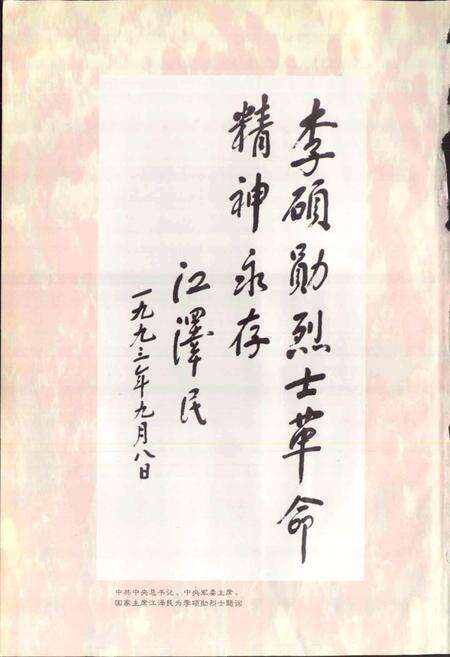 李硕勋烈士革命
精神永存
江澤民
一九九三年九月八日
中共中央总书记、中央军委主席、
国家主席江泽民为李硕勋烈士题词